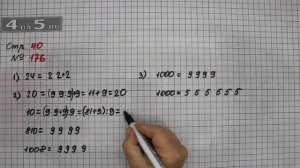 4 DA 5.RU
Стр. 40
№ 176
1) 24 = 2 2+2
2) 20 = (9 9:9)+9 = 11+9 = 20
10 = (9·9+9):9 = (81+9):9 =
810 = 9 9 9 9
1008 = 9 9 9 9
3) 1000 = 9 9 9 9
1000 = 5 5 5 5 5 5